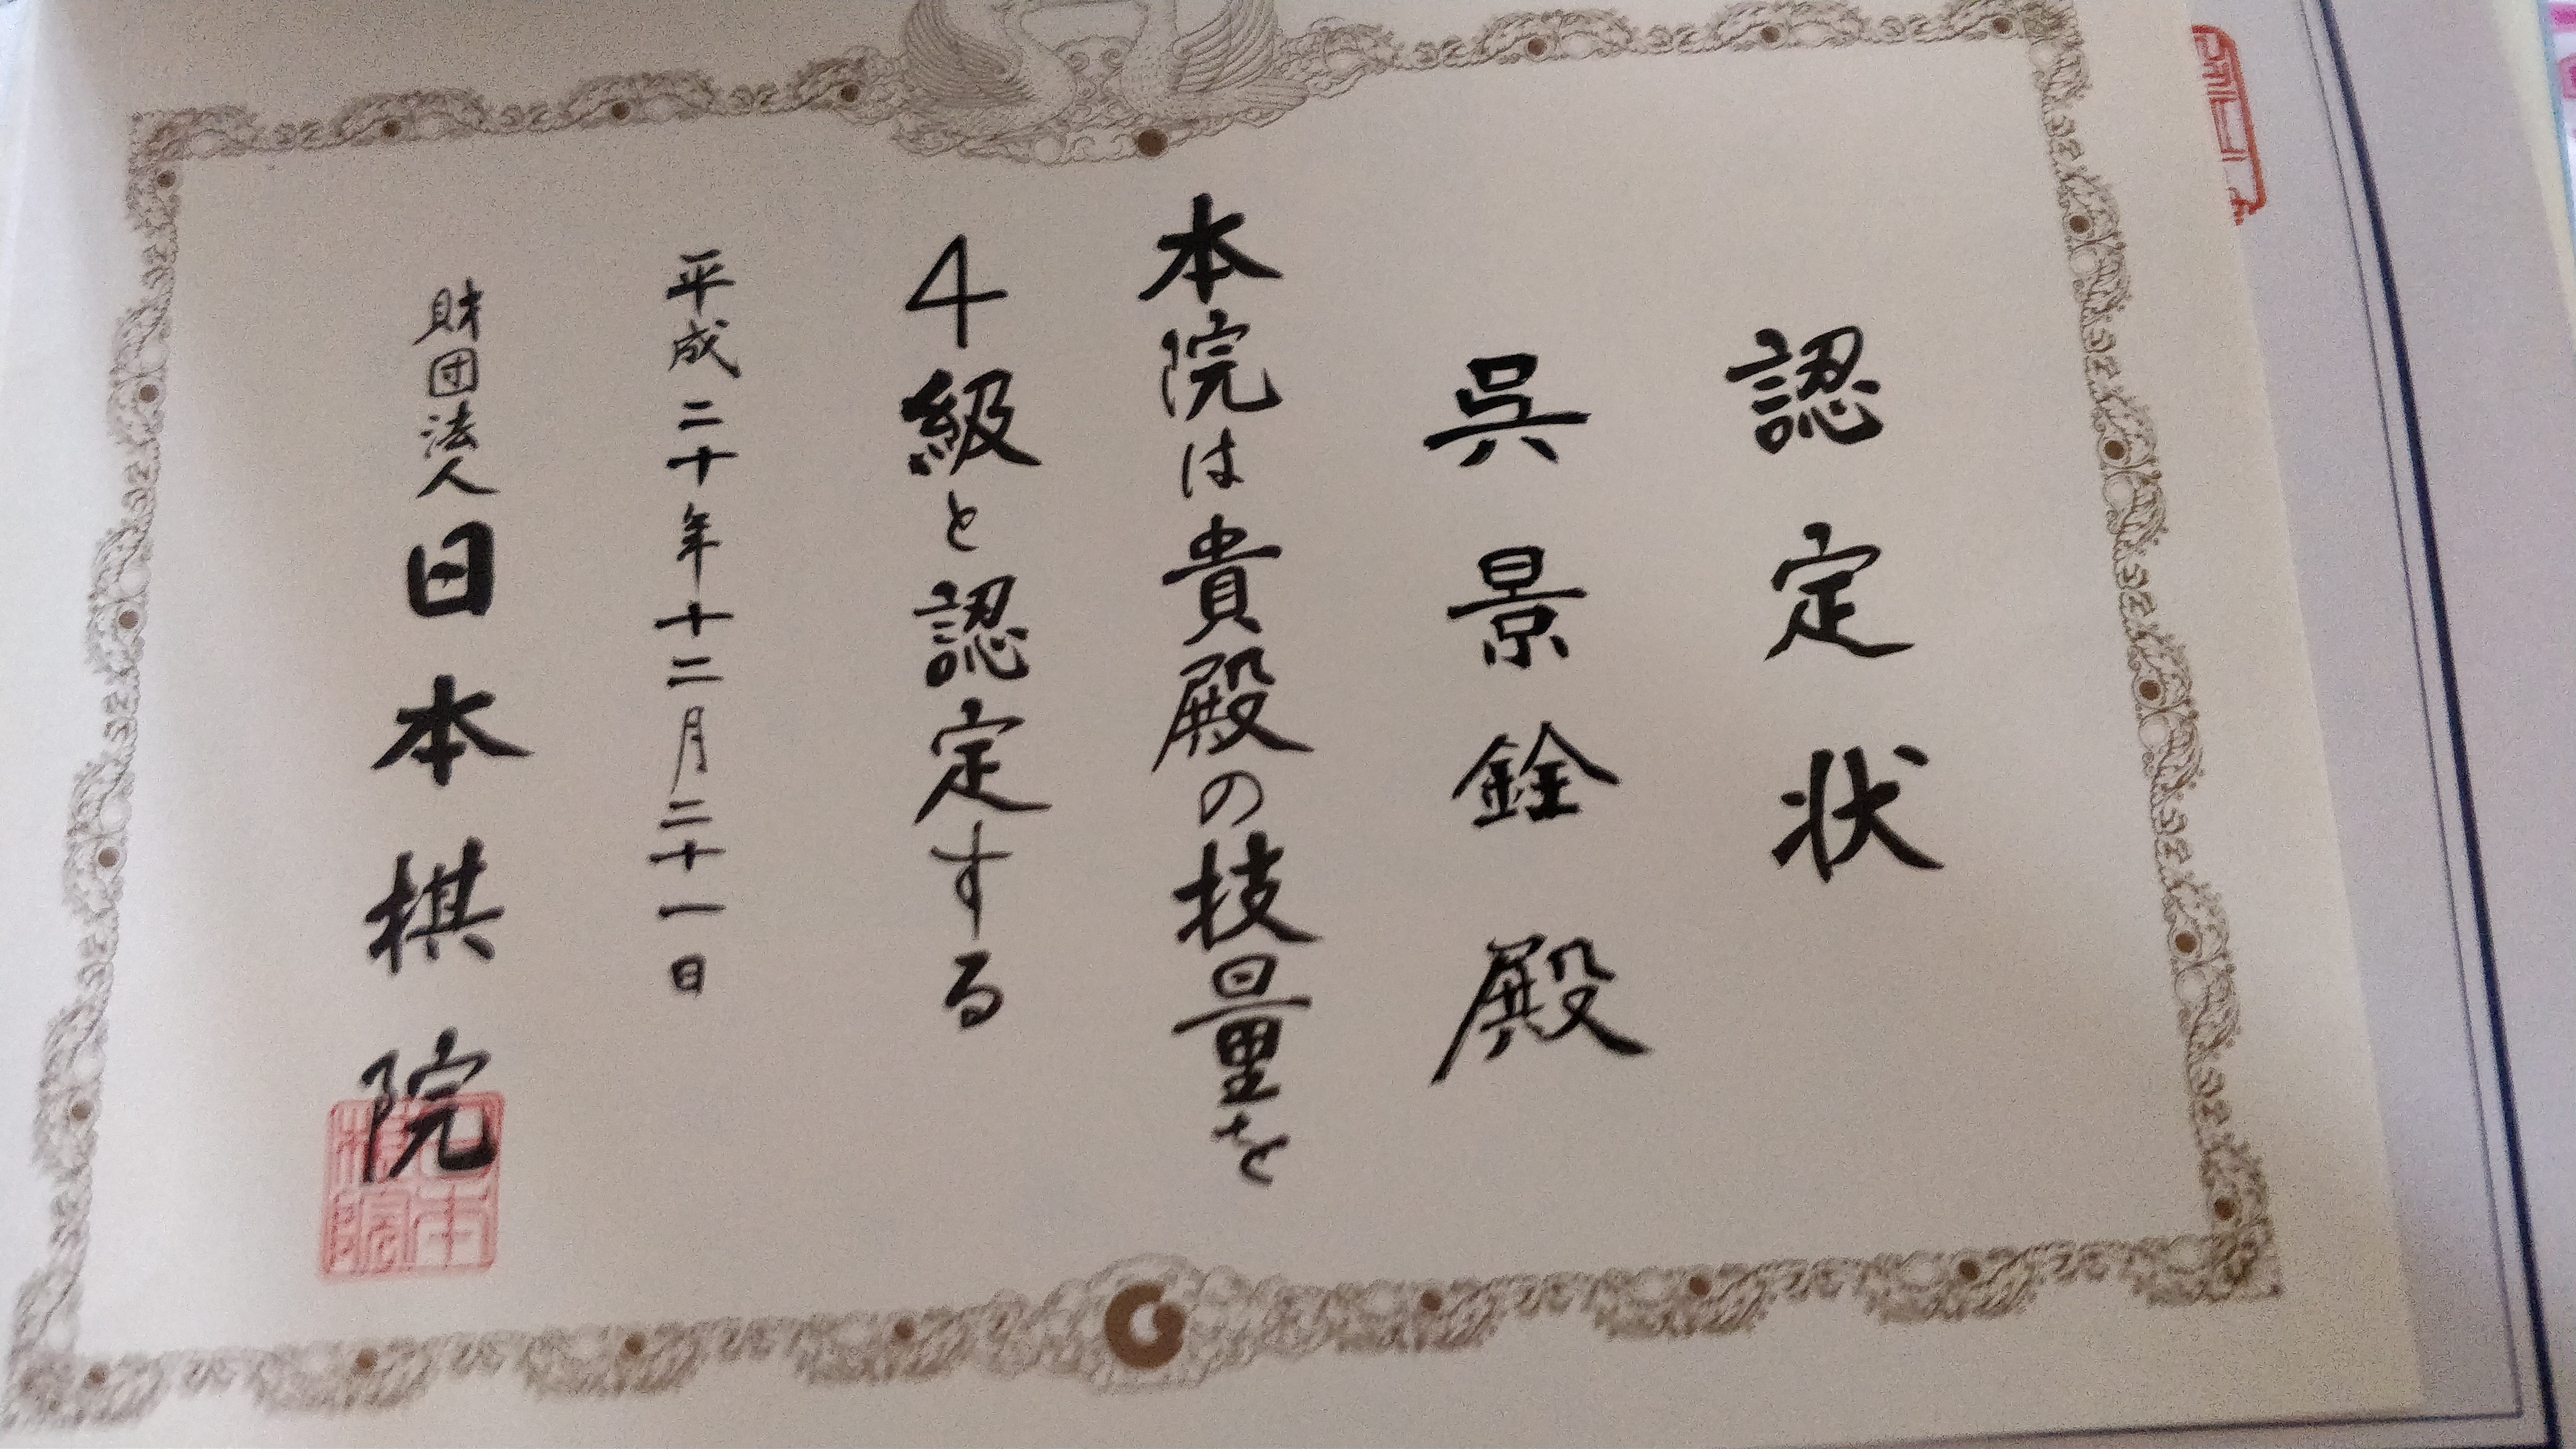 認定状
呉景銓殿
本院は貴殿の技量を
4級と認定する
平成二十年十二月二十一日
財団法人日本棋院